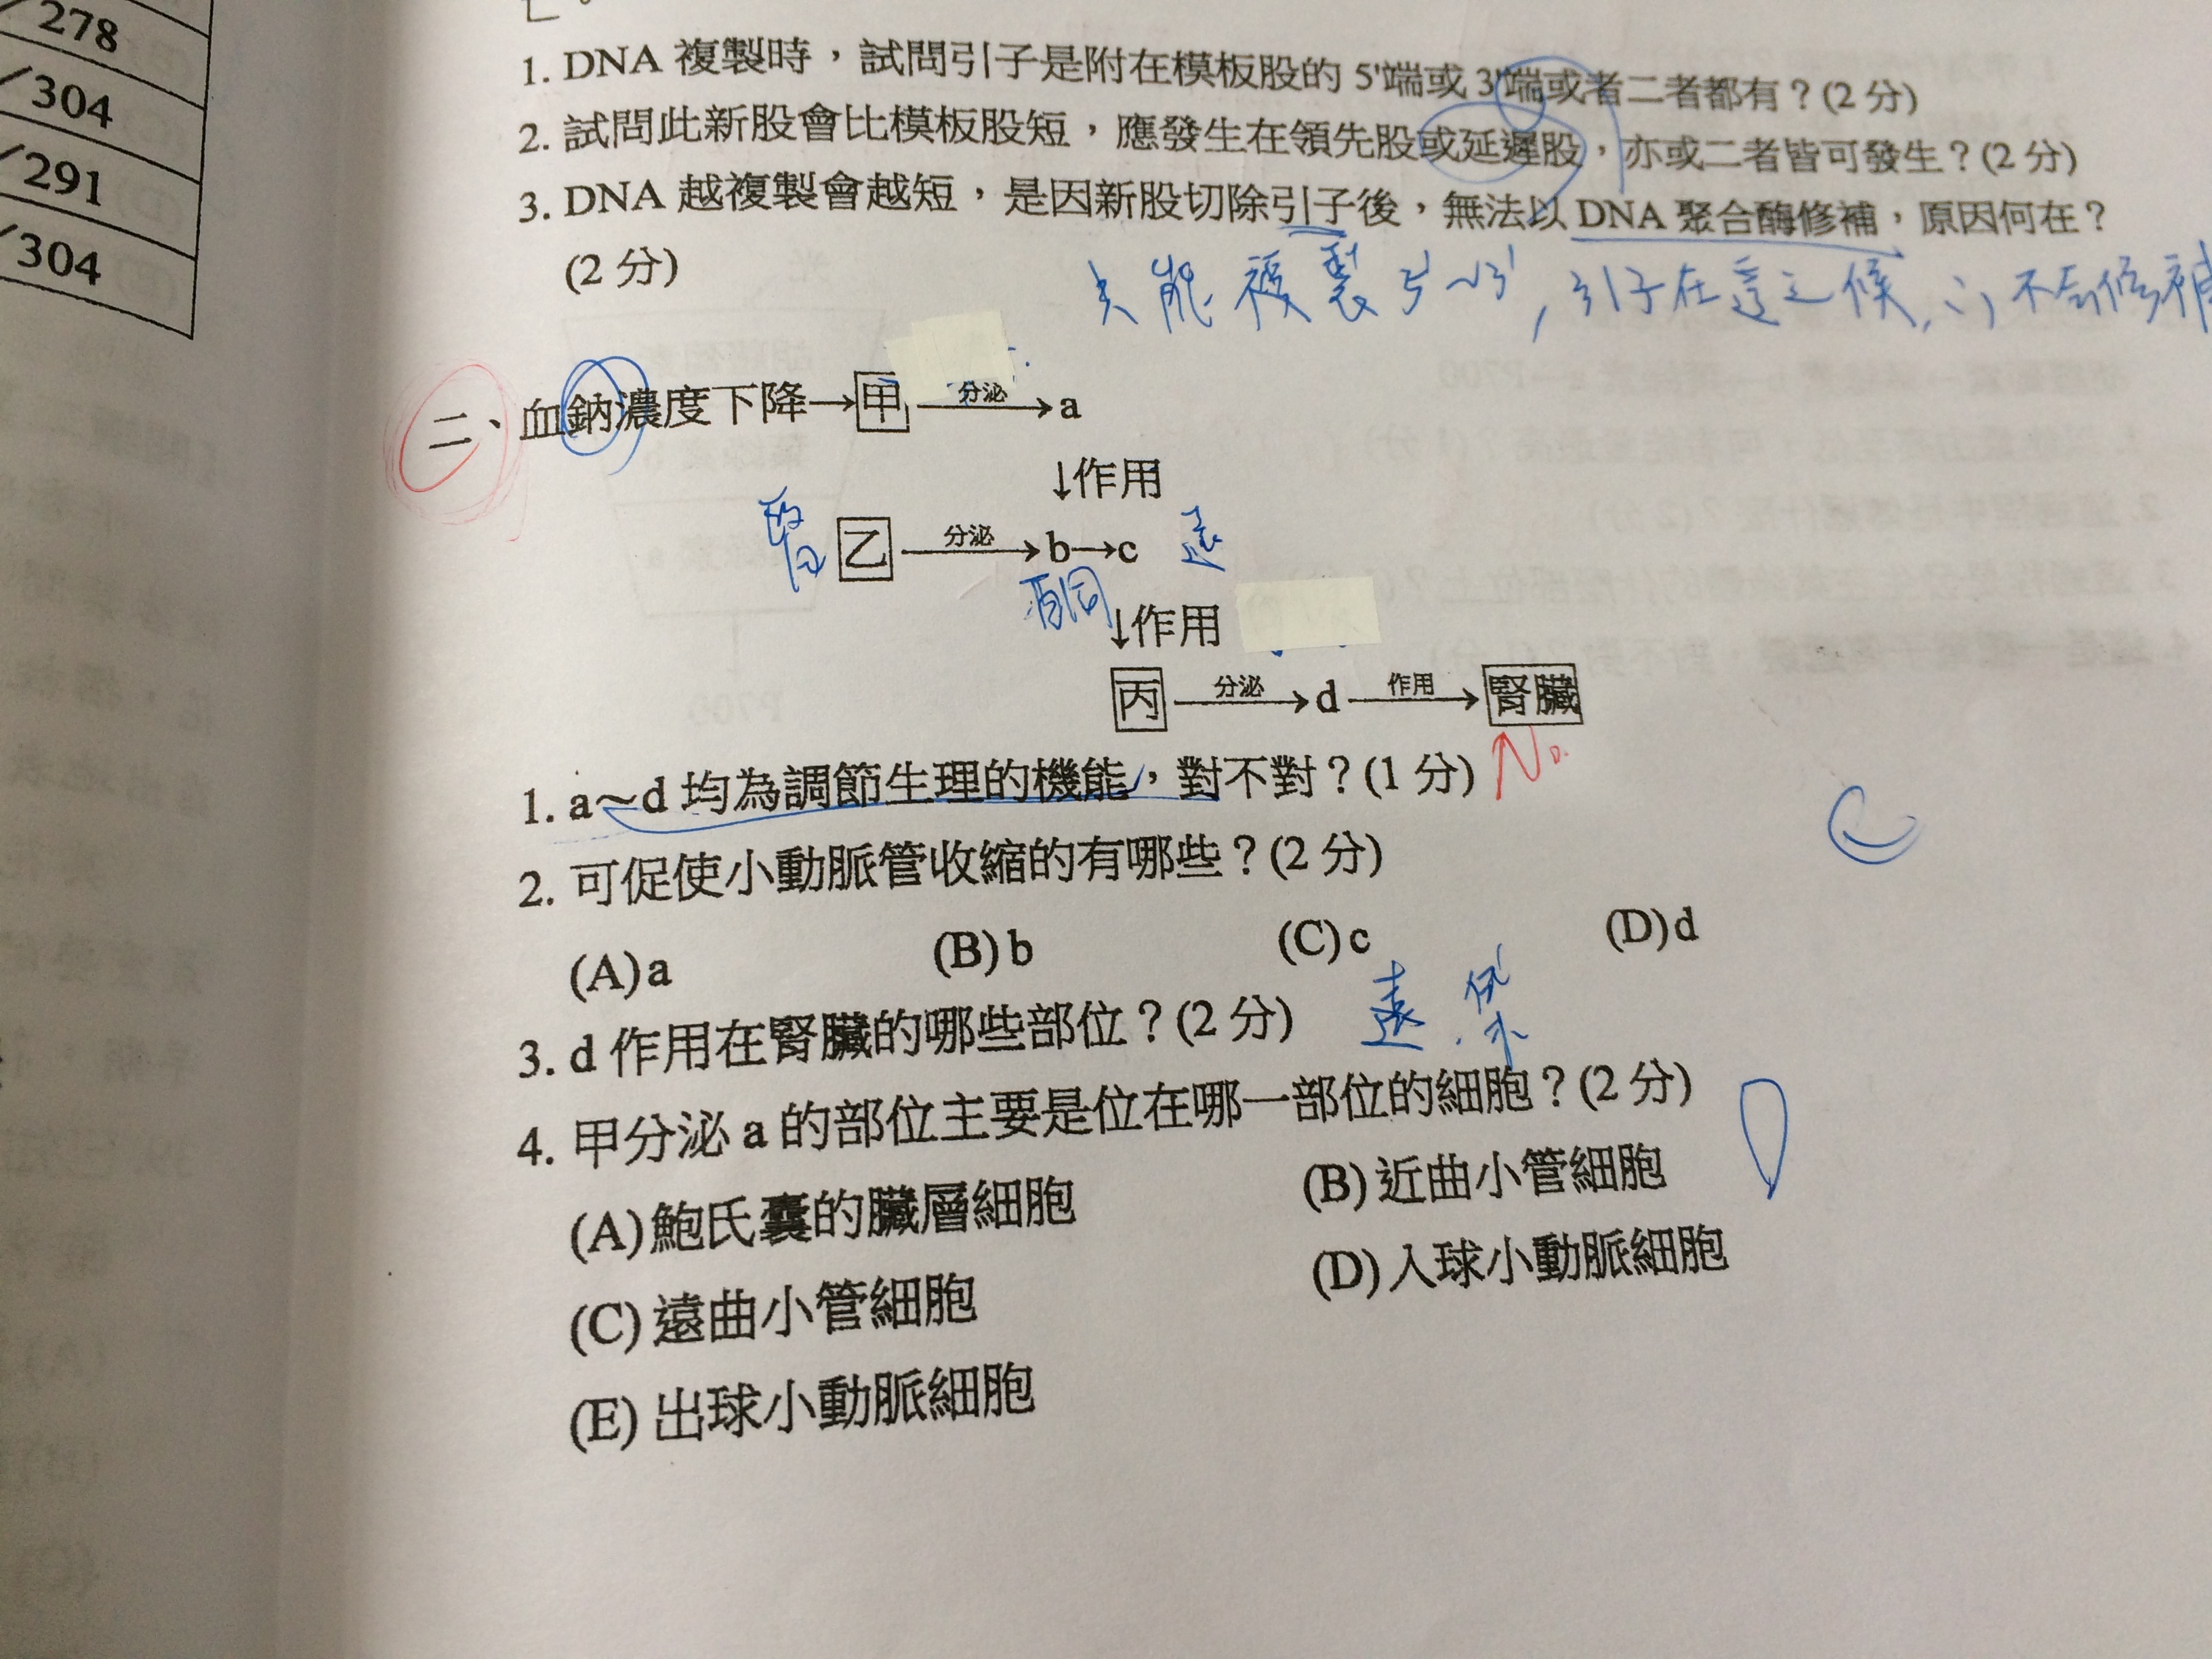 278
304
291
304
1. DNA 複製時，試問引子是附在模板股的 5'端或 3'端或者二者都有？(2 分)
2. 試問此新股會比模板股短，應發生在領先股或延遲股，亦或二者皆可發生？(2 分)
3. DNA 越複製會越短，是因新股切除引子後，無法以 DNA 聚合酶修補，原因何在？
(2 分)
能複製 5'~3', 引子在
二、血鈉濃度下降→甲 分泌→a
↓作用
腎 乙 分泌→b→c 遠
酮 ↓作用
丙 分泌→d 作用→腎臟
1. a～d 均為調節生理的機能，對不對？(1 分) No.
2. 可促使小動脈管收縮的有哪些？(2 分)
(A)a (B)b (C)c (D)d
3. d 作用在腎臟的哪些部位？(2 分) 遠．集
4. 甲分泌 a 的部位主要是位在哪一部位的細胞？(2 分)
(A)鮑氏囊的臟層細胞 (B)近曲小管細胞
(C)遠曲小管細胞 (D)入球小動脈細胞
(E) 出球小動脈細胞